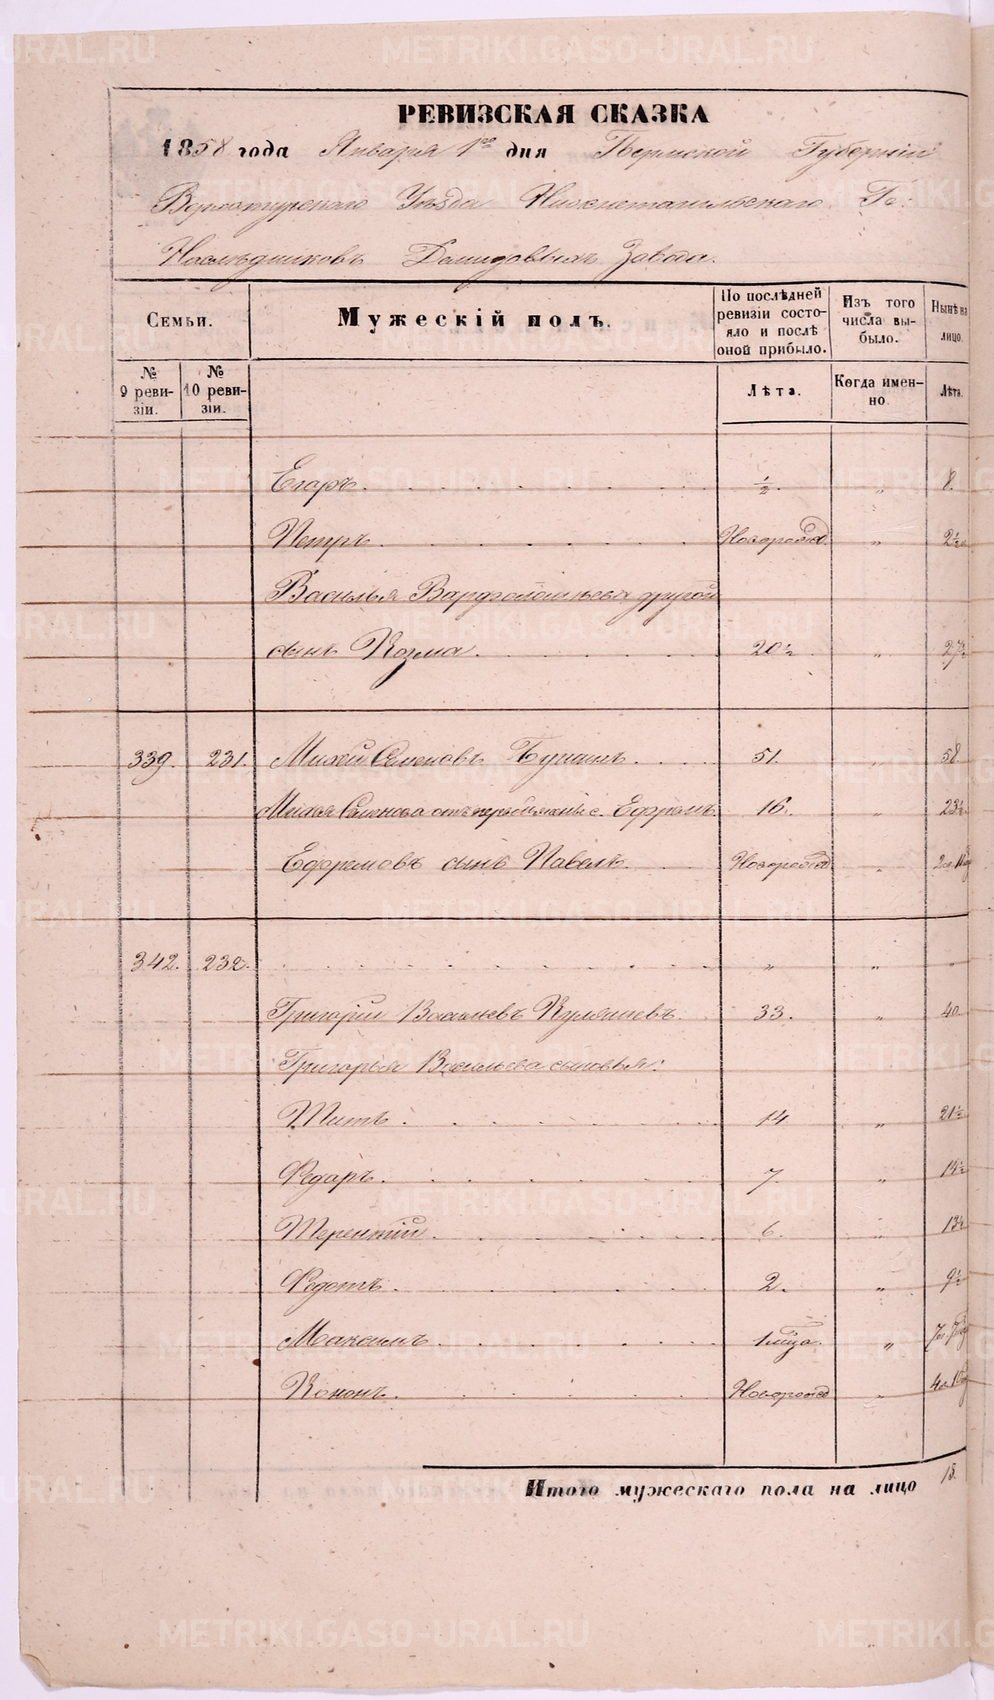 РЕВИЗСКАЯ СКАЗКА
1858 года Января 1го дня Пермской Губернии
Верхотурскаго Уѣзда Нижнетагильскаго Гг.
Наслѣдниковъ Демидовыхъ Завода.
Семьи.
Мужескій полъ.
По послѣдней ревизіи состояло и послѣ оной прибыло.
Изъ того числа выбыло.
Нынѣ на лицо.
№ 9 ревизіи.
№ 10 ревизіи.
Лѣта.
Когда именно.
Лѣта.
Егоръ. ½. „ 8.
Петръ Новорожд. „ 2½
Василья Варфоломѣева другой
сынъ Козма. 20½ „ 27½
339. 231. Михей Семеновъ Бунинъ. 51. „ 58
Михея Семенова отъ первой жены с. Ефремъ. 16. „ 23½
Ефремовъ сынъ Павелъ. Новорожд „
342. 232. „ „ „
Григорій Васильевъ Кулешевъ. 33. „ 40
Григорья Васильева сыновья:
Титъ. 14 „ 21½
Федоръ. 7. „ 14½
Терентій. 6. „ 13½
Федотъ. 2. „ 9½
Максимъ. 1 мѣца. „
Кононъ. Новорожд „
Итого мужескаго пола на лицо 15.
METRIKI.GASO-URAL.RU